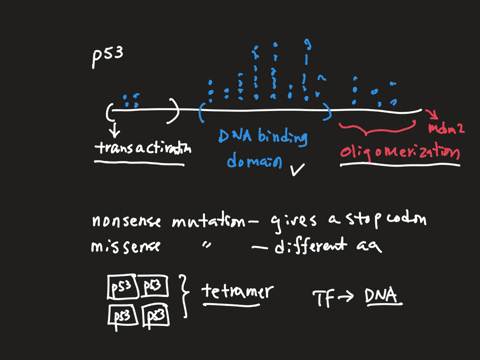 p53
mdm2
transactivation
DNA binding
domain
oligomerization
nonsense mutation – gives a stop codon
missense " – different aa
p53 p53
tetramer
TF → DNA
p53 p53